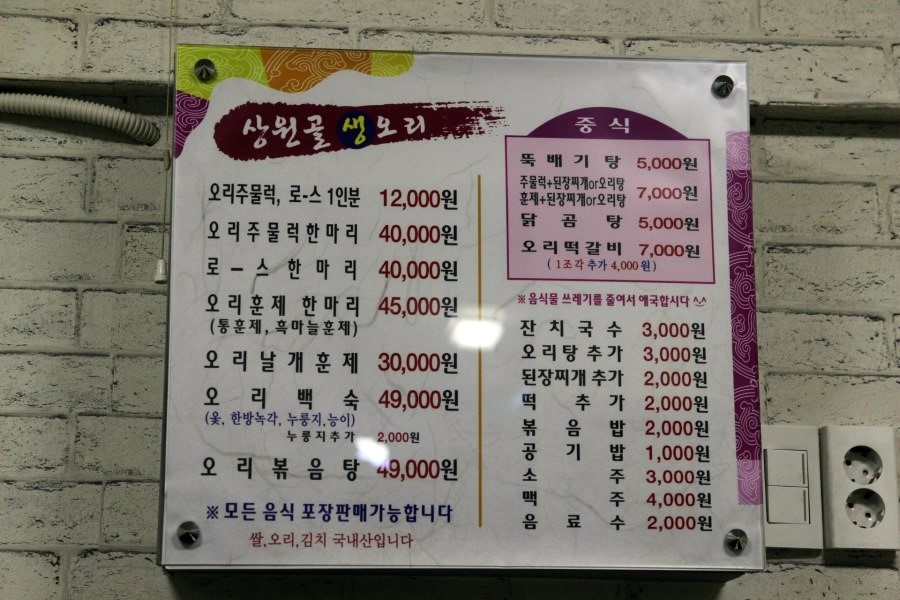 상원골 생오리
오리주물럭, 로-스 1인분 12,000원
오리주물럭한마리 40,000원
로-스한마리 40,000원
오리훈제 한마리 45,000원
(통훈제, 흑마늘훈제)
오리날개훈제 30,000원
오리백숙 49,000원
(옻, 한방녹각, 누룽지,능이)
누룽지추가 2,000원
오리볶음탕 49,000원
※ 모든 음식 포장판매가능합니다
쌀,오리,김치 국내산입니다
중식
뚝배기탕 5,000원
주물럭+된장찌개or오리탕
훈제+된장찌개or오리탕 7,000원
닭곰탕 5,000원
오리떡갈비 7,000원
( 1조각 추가 4,000원 )
※ 음식물 쓰레기를 줄여서 애국합시다 ^^
잔치국수 3,000원
오리탕추가 3,000원
된장찌개추가 2,000원
떡추가 2,000원
볶음밥 2,000원
공기밥 1,000원
소주 3,000원
맥주 4,000원
음료수 2,000원